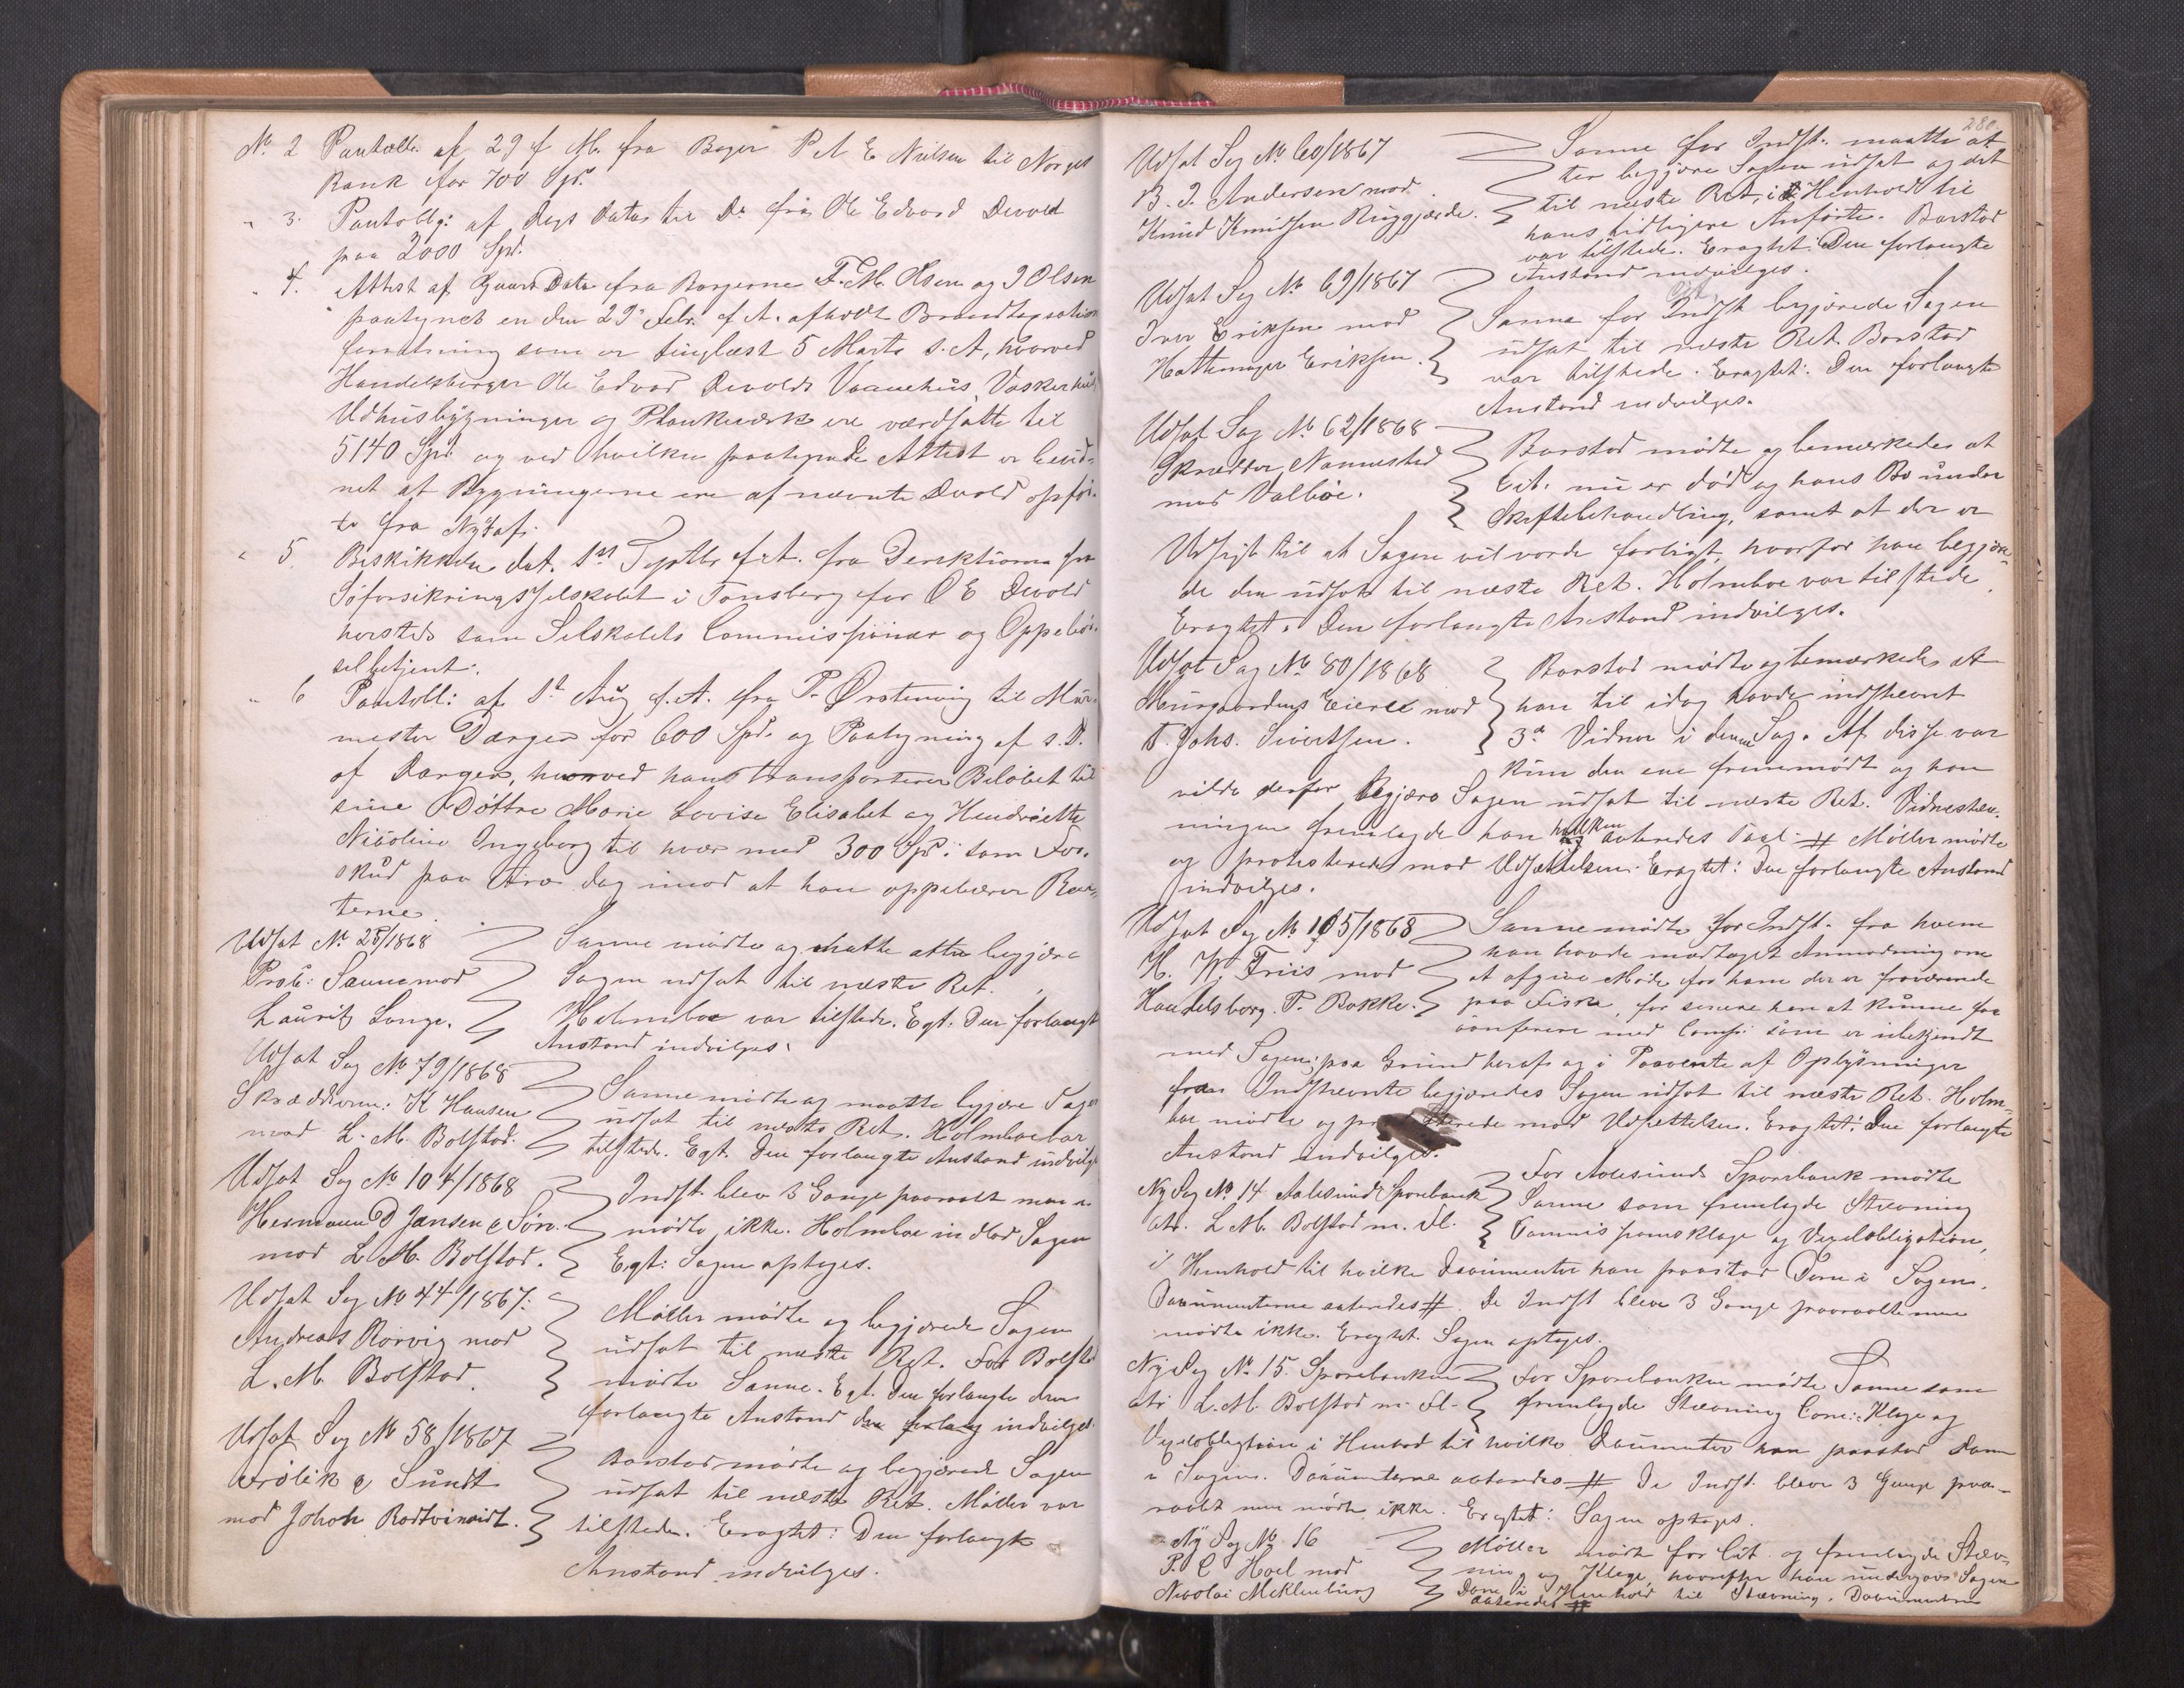 No. 2 Pantobl. af 29 f. M. fra Bager P. A. E. Nielsen til Norges
Bank for 700 Spd.
" 3. Pantoblg: af degs Dato til Do fra Ole Edvard Devold
paa 2000 Spd.
" 4. Attest af Gaars Dato fra Borgerne F. M. Olsen og J Olsen
paategnet en den 29 Febr. f. A. afholdt Brandtaxations
forretning som er tinglæst 5 Marts s. A., hvorved
Handelsborger Ole Edvard Devolds Vaanehus, Vaskerhus
Udhusbygninger og Plankeværk ere værdsatte til
5140 Spd. og ved hvilken paategnede Attest er bevid-
net at Bygningerne ere af nævnte Devold opfør-
te fra Nyt af.
" 5. Beskikkelse dat. 1st Septbr f. A. fra Derektionen for
Søforsikringsselskabet i Tønsberg for O E Devold
hersteds som Selskabets Commissionær og Oppebør-
selbetjent.
" 6 Pantobl: af 1t Aug f. A. fra P. Ørstenvig til Mur-
mester Dærgen for 600 Spd. og Paategning af s. D.
af Dærgen, hvorved han transporterer Beløbet til
sine Døttre Marie Lovise Elisabet og Hendriette
Nicoline Ingeborg til hver med 300 Spd: som For-
skud paa Arv dog imod at han oppebærer Ren-
terne.
Udsat No. 28/1868
Prok: Sanne mod
Lauritz Lange.
Sanne mødte og maatte atter begjære
Sagen udsat til næste Ret.
Holmboe var tilstede. Egt. Den forlangte
Anstand indvilges.
Udsat Sag No. 79/1868
Skrædderm: K Hansen
mod L. M. Bolstad.
Sanne mødte og maatte begjære Sagen
udsat til næste Ret. Holmboe var
tilstede. Egt. Den forlangte Anstand indvilges
Udsat Sag No 104/1868
Hermann D Jansen & Søn.
mod L. M. Bolstad.
Indst. blev 3 Gange paaraabt men
mødte ikke. Holmboe indlod Sagen
Egt: Sagen optages.
Udsat Sag No 44/1867:
Andreas Rørvig mod
L. M. Bolstad.
Møller mødte og begjærede Sagen
udsat til næste Ret. For Bolstad
mødte Sanne. Egt. Den forlangte den
forlangte Anstand den forlang indvilges.
Udsat Sag No 58/1867
Frølik & Sundt
mod Johan Rødtvinvidt.
Barstad mødte og begjærede Sagen
udsat til næste Ret. Møller var
tilstede. Eragtet: Den forlangte
Anstand indvilges.
280
Udsat Sag No 60/1867
B. J. Andersen mod
Knud Knudsen Ruggjærde.
Sanne for Indst. maatte at
ter begjære Sagen udsat og det
til næste Ret, i Henhold til
hans tidligere Anførte. Barstad
var tilstede. Eragtet: Den forlangte
Anstand indvilges.
Udsat Sag No 69/1867
Iver Eriksen mod
Hattemager Eriksen.
Cit
Sanne for Indst begjærede Sagen
udsat til næste Ret. Barstad
var tilstede. Eragtet: Den forlangte
Anstand indvilges.
Udsat Sag No 62/1868
Skrædder Nannestad
mod Valbøe.
Barstad mødte og bemærkede at
Cit. nu er død og hans Bo under
Skiftebehandling, samt at der er
Udsigt til at Sagen vil vorde forligt, hvorfor han begjære-
de den udsat til næste Ret. Holmboe var tilstede.
Eragtet: Den forlangte Anstand indvilges.
Udsat Sag No 80/1868
Murgaardens Eiere mod
T. Johs. Sivertsen.
Barstad mødte og bemærkede at
han til idag havde indstevnt
3de Vidner i denne Sag. Af disse var
kun den ene fremmødt og han
vilde derfor begjære Sagen udsat til næste Ret. Vidnestæv-
ningen fremlagde han hvilken acteredes saal. # Møller mødte
og protesterede mod Udsættelsen. Eragtet: Den forlangte Anstand
indvilges.
Udsat Sag No 105/1868
H. W. Friis mod
Handelsborg. P. Bakke.
Sanne mødte for Indst. fra hvem
han havde modtaget Anmodning om
at afgive Møde for ham der er fraværende
paa Fiske, for senere hen at kunne faa
conferere med Compi som er ubekjendt
med Sagen; paa Grund heraf og i Paavente af Oplysninger
fra Indstevnte begjæredes Sagen udsat til næste Ret. Holm-
boe mødte og protesterede mod Udsettelsen. Eragtet: Den forlangte
Anstand indvilges.
Ny Sag No. 14 Aalesund Sparebank
ctr. L. M. Bolstad m. Fl.
For Aalesunds Sparebank mødte
Sanne som fremlagde Stevning
Commissionsklage og Vexelobligation,
i Henhold til hvilke Documenter han paastod Dom i Sagen.
Documenterne acteredes #. De Indst bleve 3 Gange paaraabte men
mødte ikke. Eragtet. Sagen optages.
Ny Sag No. 15. Sparebanken
ctr L. M. Bolstad m. Fl.
For Sparebanken mødte Sanne som
fremlagde Stævning Com: Klage og
Vexelobligtion i Henhod til hvilke Documenter han paastod Dom
i Sagen. Documenterne acteredes # De Indst. bleve 3 Gange paa-
raabt men mødte ikke. Eragtet: Sagen optages.
Ny Sag No. 16
P. C Hoel mod
Nicolai Meklenburg
Møller mødte for Cit. og fremlagde Stæv-
ning og Klage, hvorefter han undergav Sagen
Dom i Henhold til Stævning. Documenterne
acteredes #